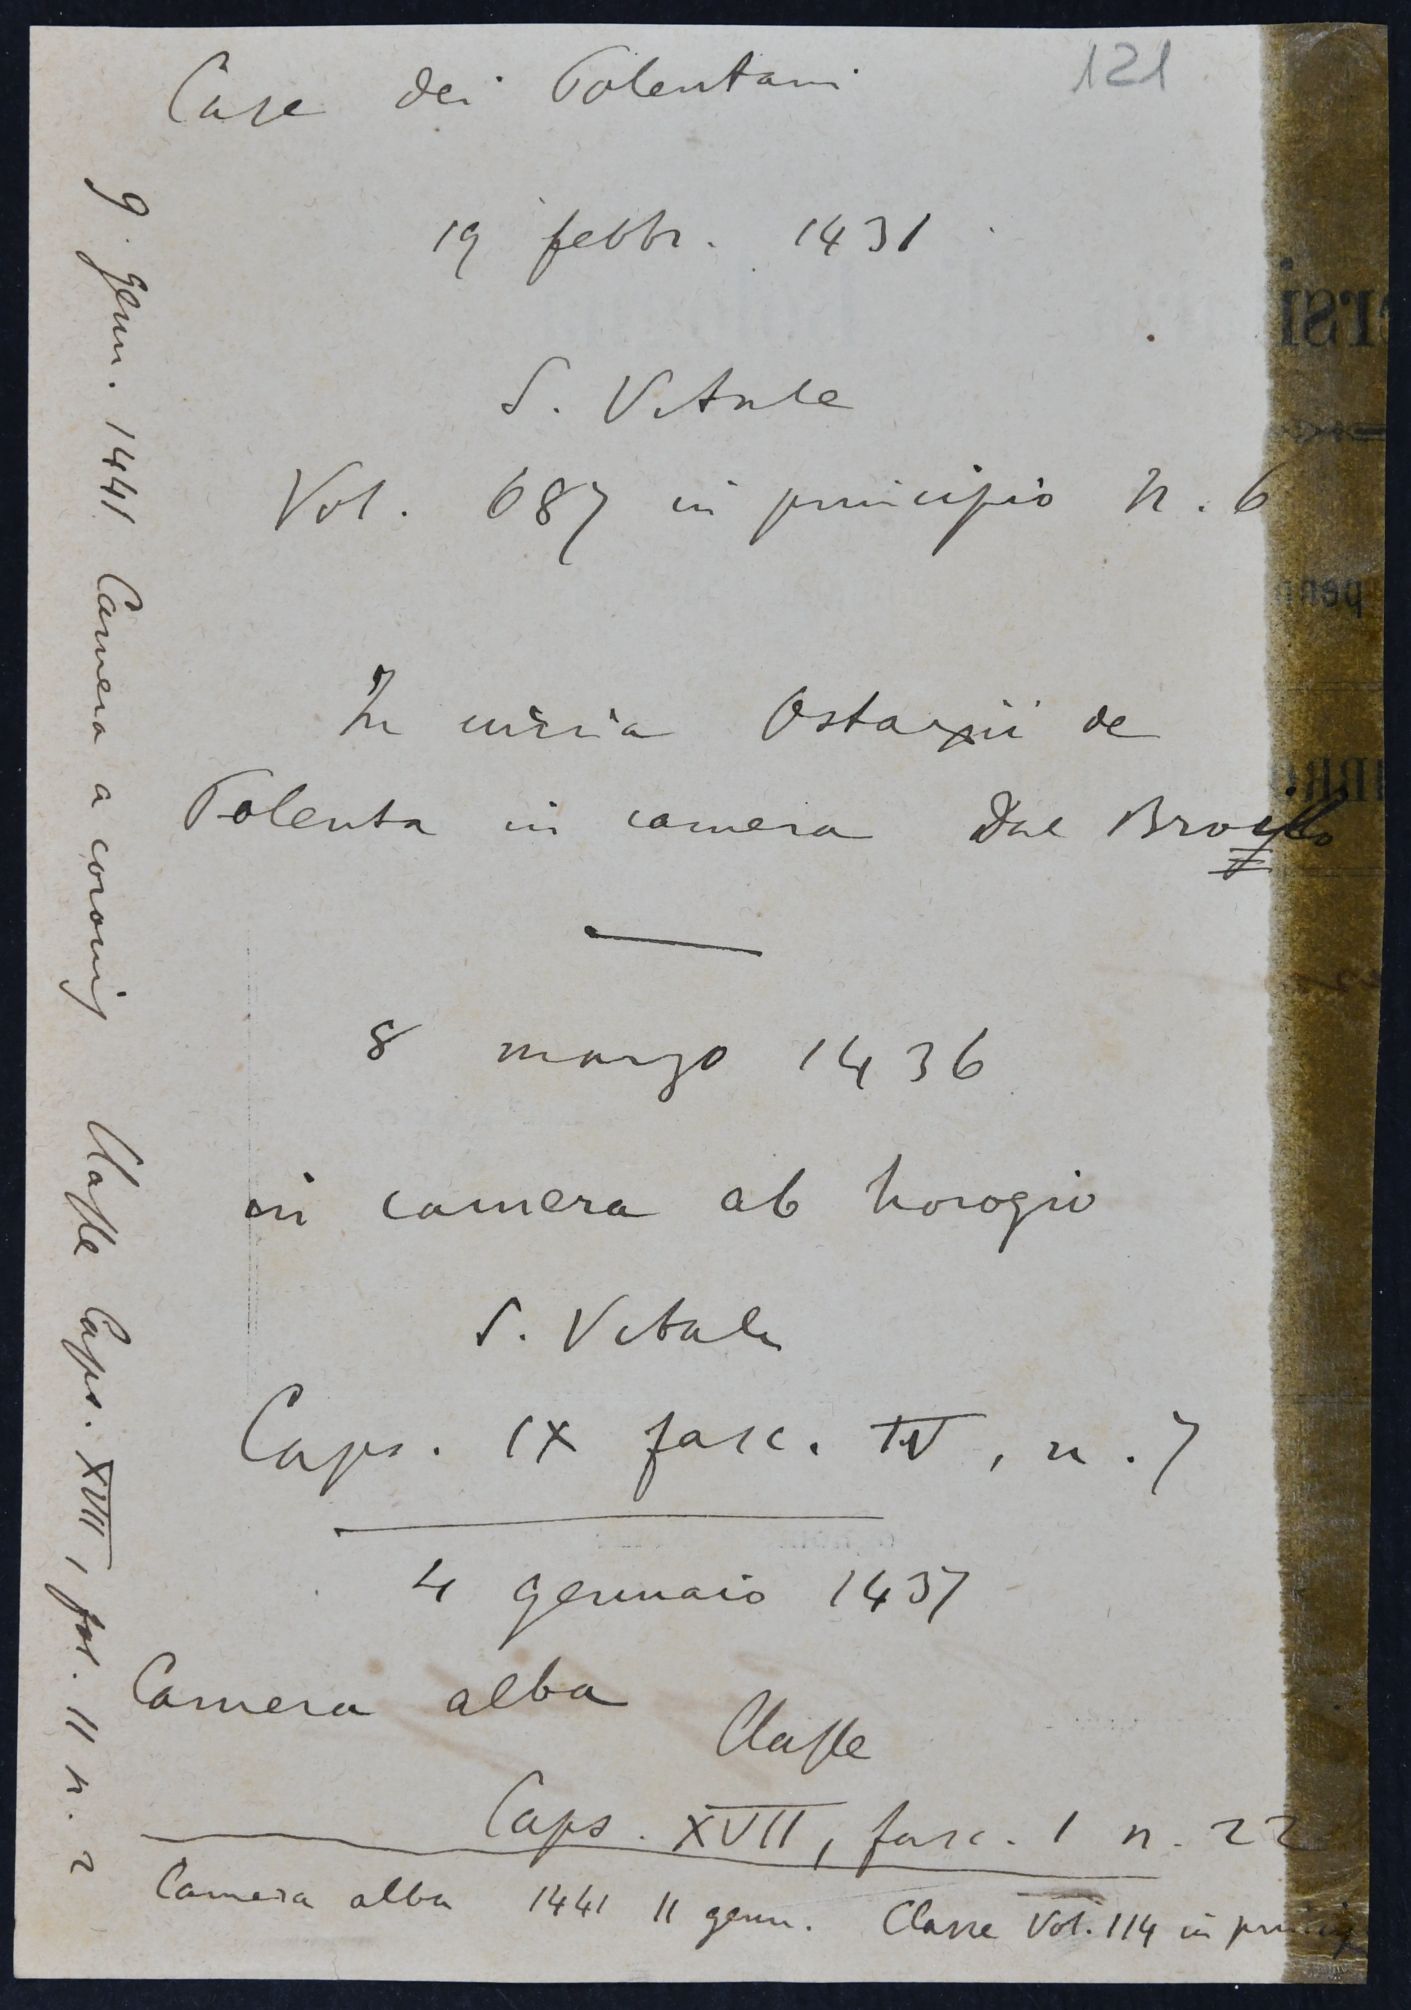 121
Case dei Polentani
19 febbr. 1431
S. Vitale
Vol. 687 in principio n. 6
In curia Ostaxii de
Polenta in camera dal Broilo
8 marzo 1436
in camera ab horogio
S. Vitale
Caps. IX fasc. IV, n. 7
4 gennaio 1437
Camera alba
Classe
Caps. XVII, fasc. 1 n. 22
Camera alba 1441 11 genn. Classe Vol. 114 in princip
9 genn. 1441 Camera a coronis Classe Caps. XVIII, fas. II n. 2